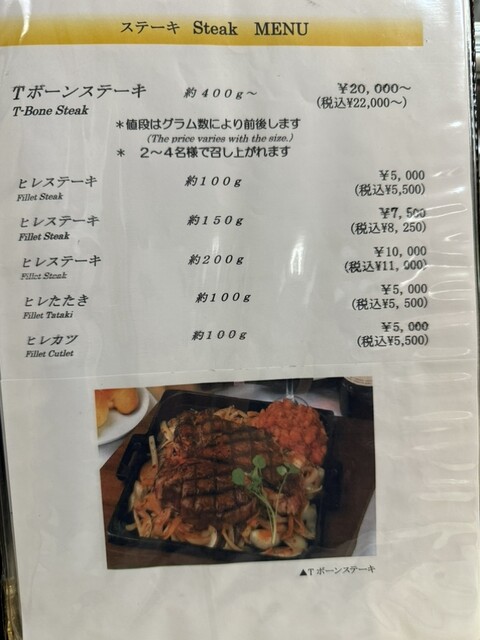 ステーキ Steak MENU
Tボーンステーキ 約400g～ ¥20,000～
T-Bone Steak (税込¥22,000～)
＊値段はグラム数により前後します
(The price varies with the size.)
＊ 2～4名様で召し上がれます
ヒレステーキ 約100g ¥5,000
Fillet Steak (税込¥5,500)
ヒレステーキ 約150g ¥7,500
Fillet Steak (税込¥8,250)
ヒレステーキ 約200g ¥10,000
Fillet Steak (税込¥11,000)
ヒレたたき 約100g ¥5,000
Fillet Tataki (税込¥5,500)
ヒレカツ 約100g ¥5,000
Fillet Cutlet (税込¥5,500)
▲Tボーンステーキ